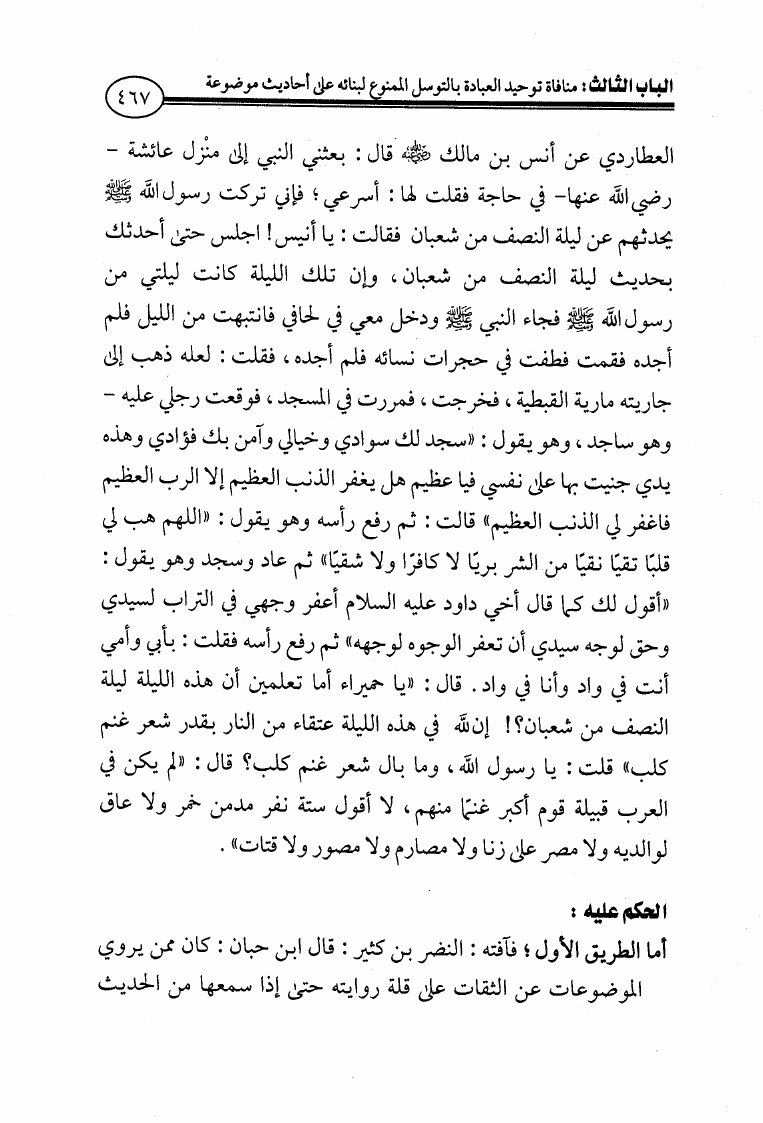 الباب الثالث: منافاة توحيد العبادة بالتوسل الممنوع لبنائه على أحاديث موضوعة
٤٦٧
العطاردي عن أنس بن مالك ﵁ قال: بعثني النبي إلى منْزل عائشة -
رضي الله عنها- في حاجة فقلت لها: أسرعي؛ فإني تركت رسول الله ﷺ
يحدثهم عن ليلة النصف من شعبان فقالت: يا أنيس! اجلس حتى أحدثك
بحديث ليلة النصف من شعبان، وإن تلك الليلة كانت ليلتي من
رسول الله ﷺ فجاء النبي ﷺ ودخل معي في لحافي فانتبهت من الليل فلم
أجده فقمت فطفت في حجرات نسائه فلم أجده، فقلت: لعله ذهب إلى
جاريته مارية القبطية، فخرجت، فمررت في المسجد، فوقعت رجلي عليه -
وهو ساجد، وهو يقول: «سجد لك سوادي وخيالي وآمن بك فؤادي وهذه
يدي جنيت بها على نفسي فيا عظيم هل يغفر الذنب العظيم إلا الرب العظيم
فاغفر لي الذنب العظيم» قالت: ثم رفع رأسه وهو يقول: «اللهم هب لي
قلبًا تقيًا نقيًا من الشر بريًا لا كافرًا ولا شقيًا» ثم عاد وسجد وهو يقول:
«أقول لك كما قال أخي داود عليه السلام أعفر وجهي في التراب لسيدي
وحق لوجه سيدي أن تعفر الوجوه لوجهه» ثم رفع رأسه فقلت: بأبي وأمي
أنت في واد وأنا في واد. قال: «يا حميراء أما تعلمين أن هذه الليلة ليلة
النصف من شعبان؟! إن لله في هذه الليلة عتقاء من النار بقدر شعر غنم
كلب» قلت: يا رسول الله، وما بال شعر غنم كلب؟ قال: «لم يكن في
العرب قبيلة قوم أكبر غنمًا منهم، لا أقول ستة نفر مدمن خمر ولا عاق
لوالديه ولا مصر على زنا ولا مصارم ولا مصور ولا قتات».
الحكم عليه:
أما الطريق الأول؛ فآفته: النضر بن كثير: قال ابن حبان: كان ممن يروي
الموضوعات عن الثقات على قلة روايته حتى إذا سمعها من الحديث